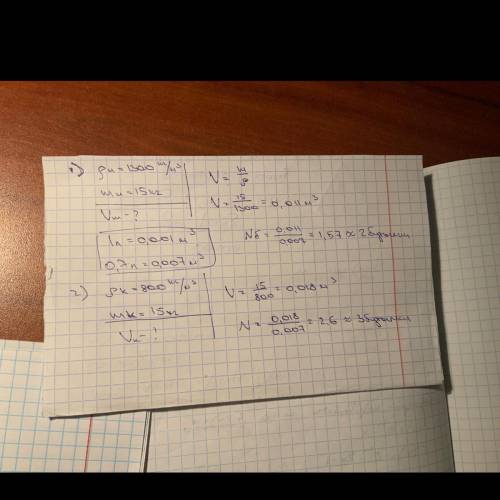 1) ρм = 1300 кг/м³
mм = 15 кг
Vм - ?
V = m/ρ
V = 15/1300 = 0,011 м³
1л = 0,001 м³
0,7л = 0,007 м³
Nб = 0,011/0,007 = 1,57 ≈ 2 бутылки
2) ρк = 800 кг/м³
mк = 15 кг
Vк - ?
V = 15/800 = 0,018 м³
N = 0,018/0,007 = 2,6 ≈ 3 бутылки